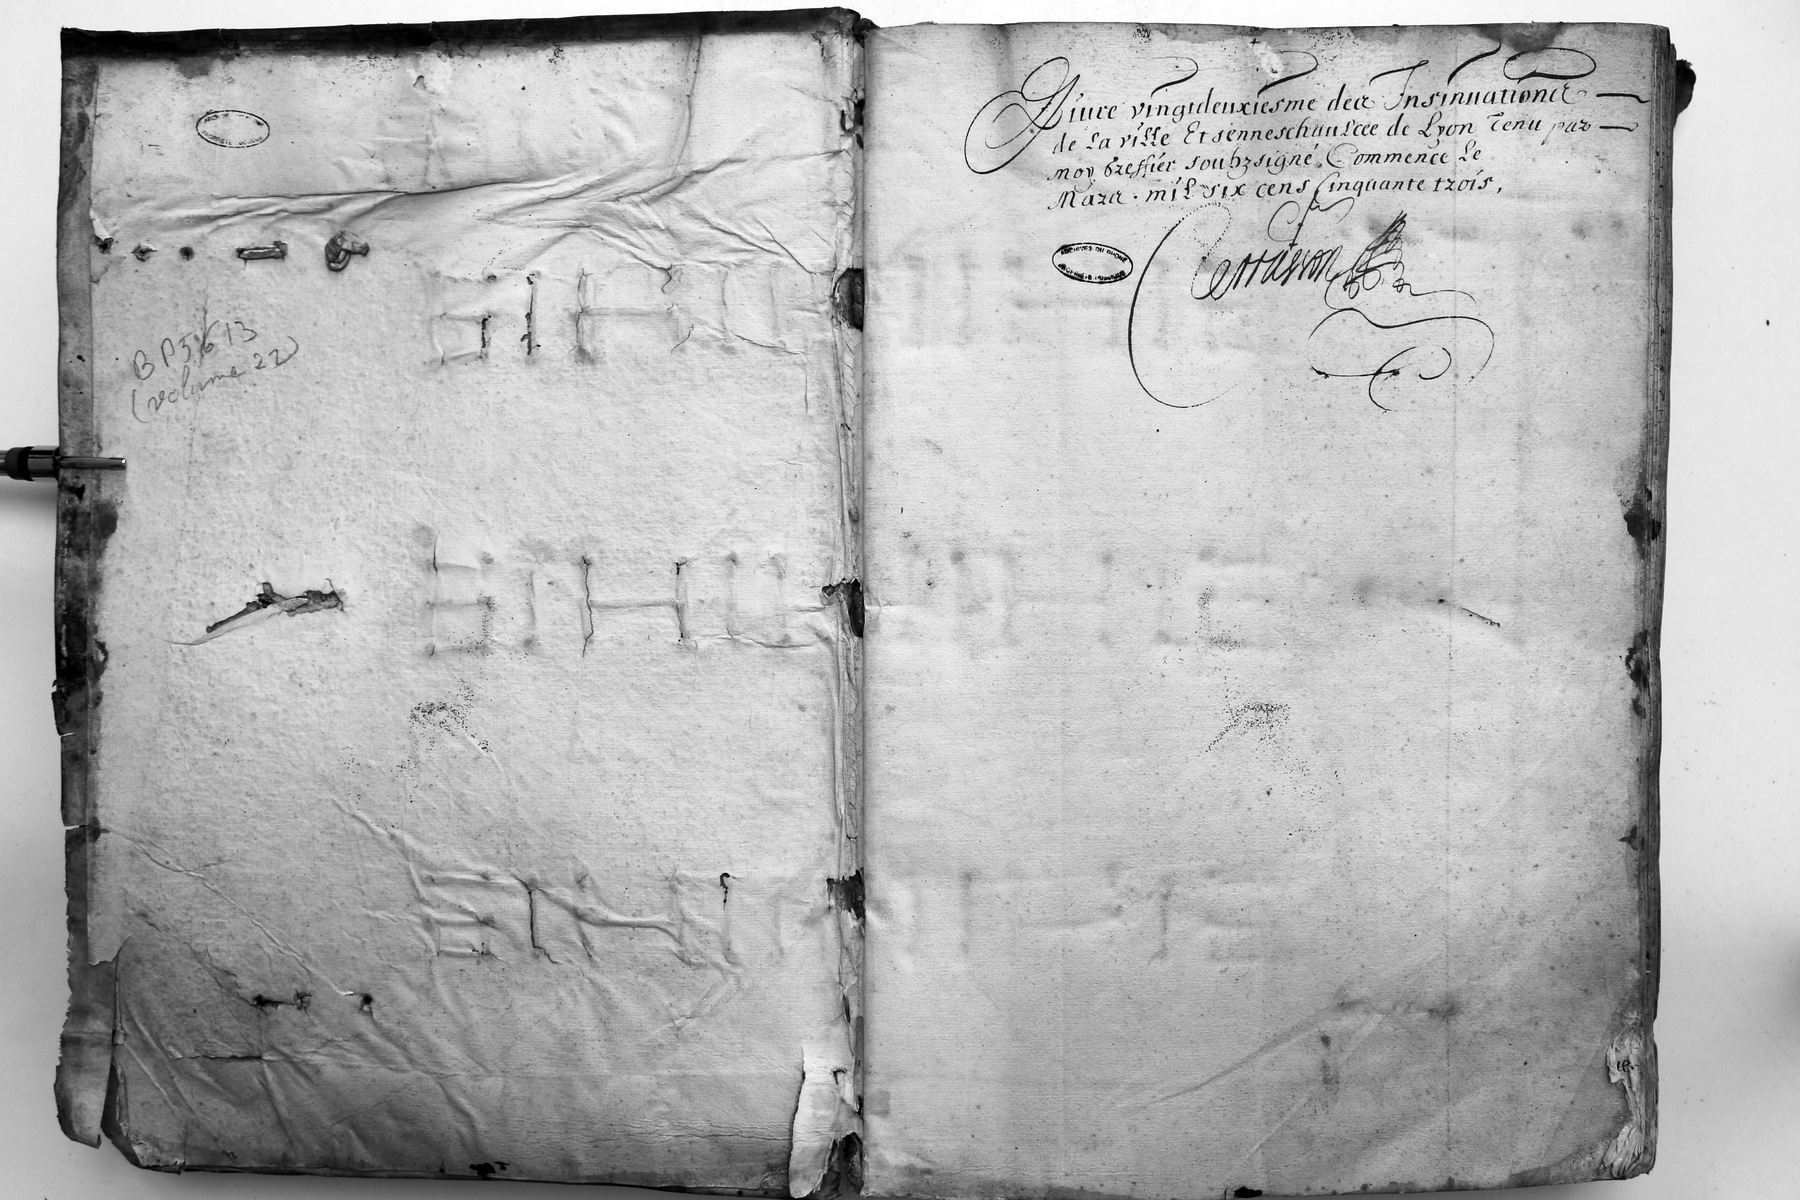 BP 3613
(volume 22)
Liure vingtdeuxiesme des Insinuations
de La ville Et senneschaulcee de Lyon Tenu par
moy Greffier soubzsigné, Commencé Le
Mars mil six cens Cinquante trois,
ARCHIVES DU RHONE